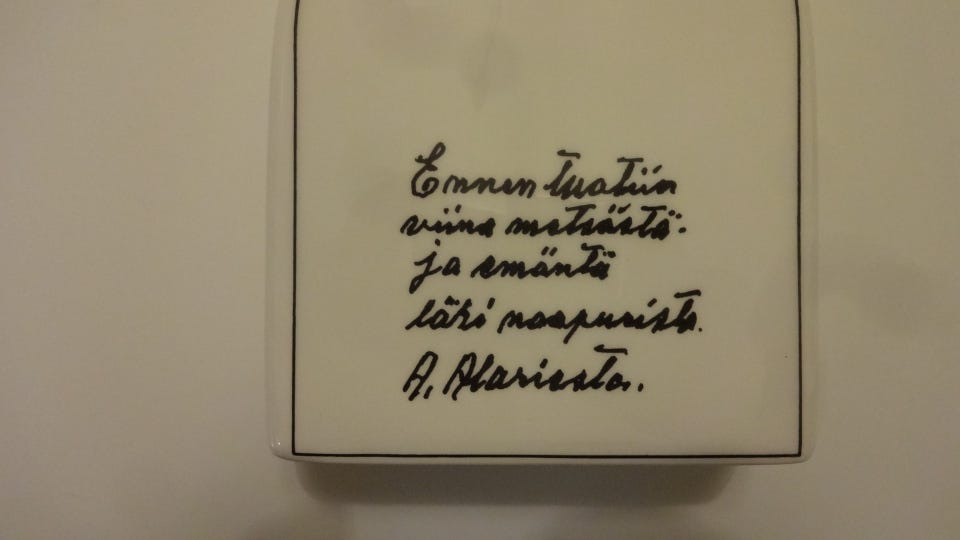 Ennen tuotiin
viina metsästä.
ja emäntä
läki naapurista.
A. Alariesto.